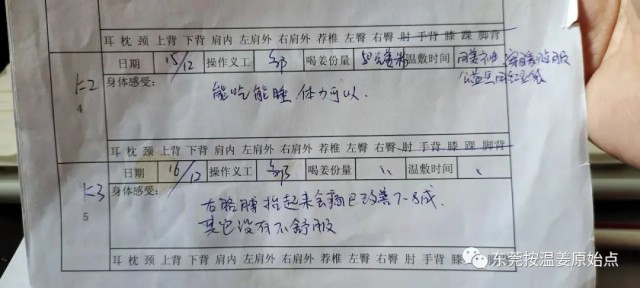 耳 枕 颈 上背 下背 肩内 左肩外 右肩外 荐椎 左臀 右臀 肘 手背 膝 踝 脚背
日期 15/12 操作义工 邹 喝姜份量 温敷时间
上2 身体感受：
4 能吃能睡 体力可以.
耳 枕 颈 上背 下背 肩内 左肩外 右肩外 荐椎 左臀 右臀 肘 手背 膝 踝 脚背
日期 16/12 操作义工 邹 喝姜份量 〃 温敷时间 〃
上3 身体感受：
5 右胳膊抬起来会痛已改善7-8成.
其它没有不舒服
耳 枕 颈 上背 下背 肩内 左肩外 右肩外 荐椎 左臀 右臀 肘 手背 膝 踝 脚背
东莞按温姜原始点